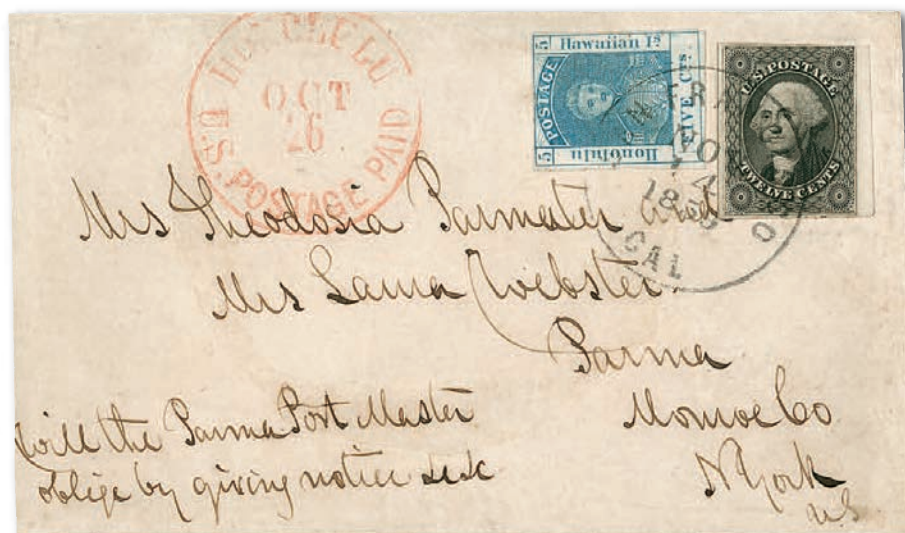 HONOLULU
OCT
26
U.S. POSTAGE PAID
5 Hawaiian Is
POSTAGE
FIVE Cts.
5 Honolulu
U.S. POSTAGE
TWELVE CENTS
CAL
Mrs Theodosia Parmater and
Mrs Laura Webster
Parma
Monroe Co
N York
U.S
Will the Parma Post Master
oblige by giving notice